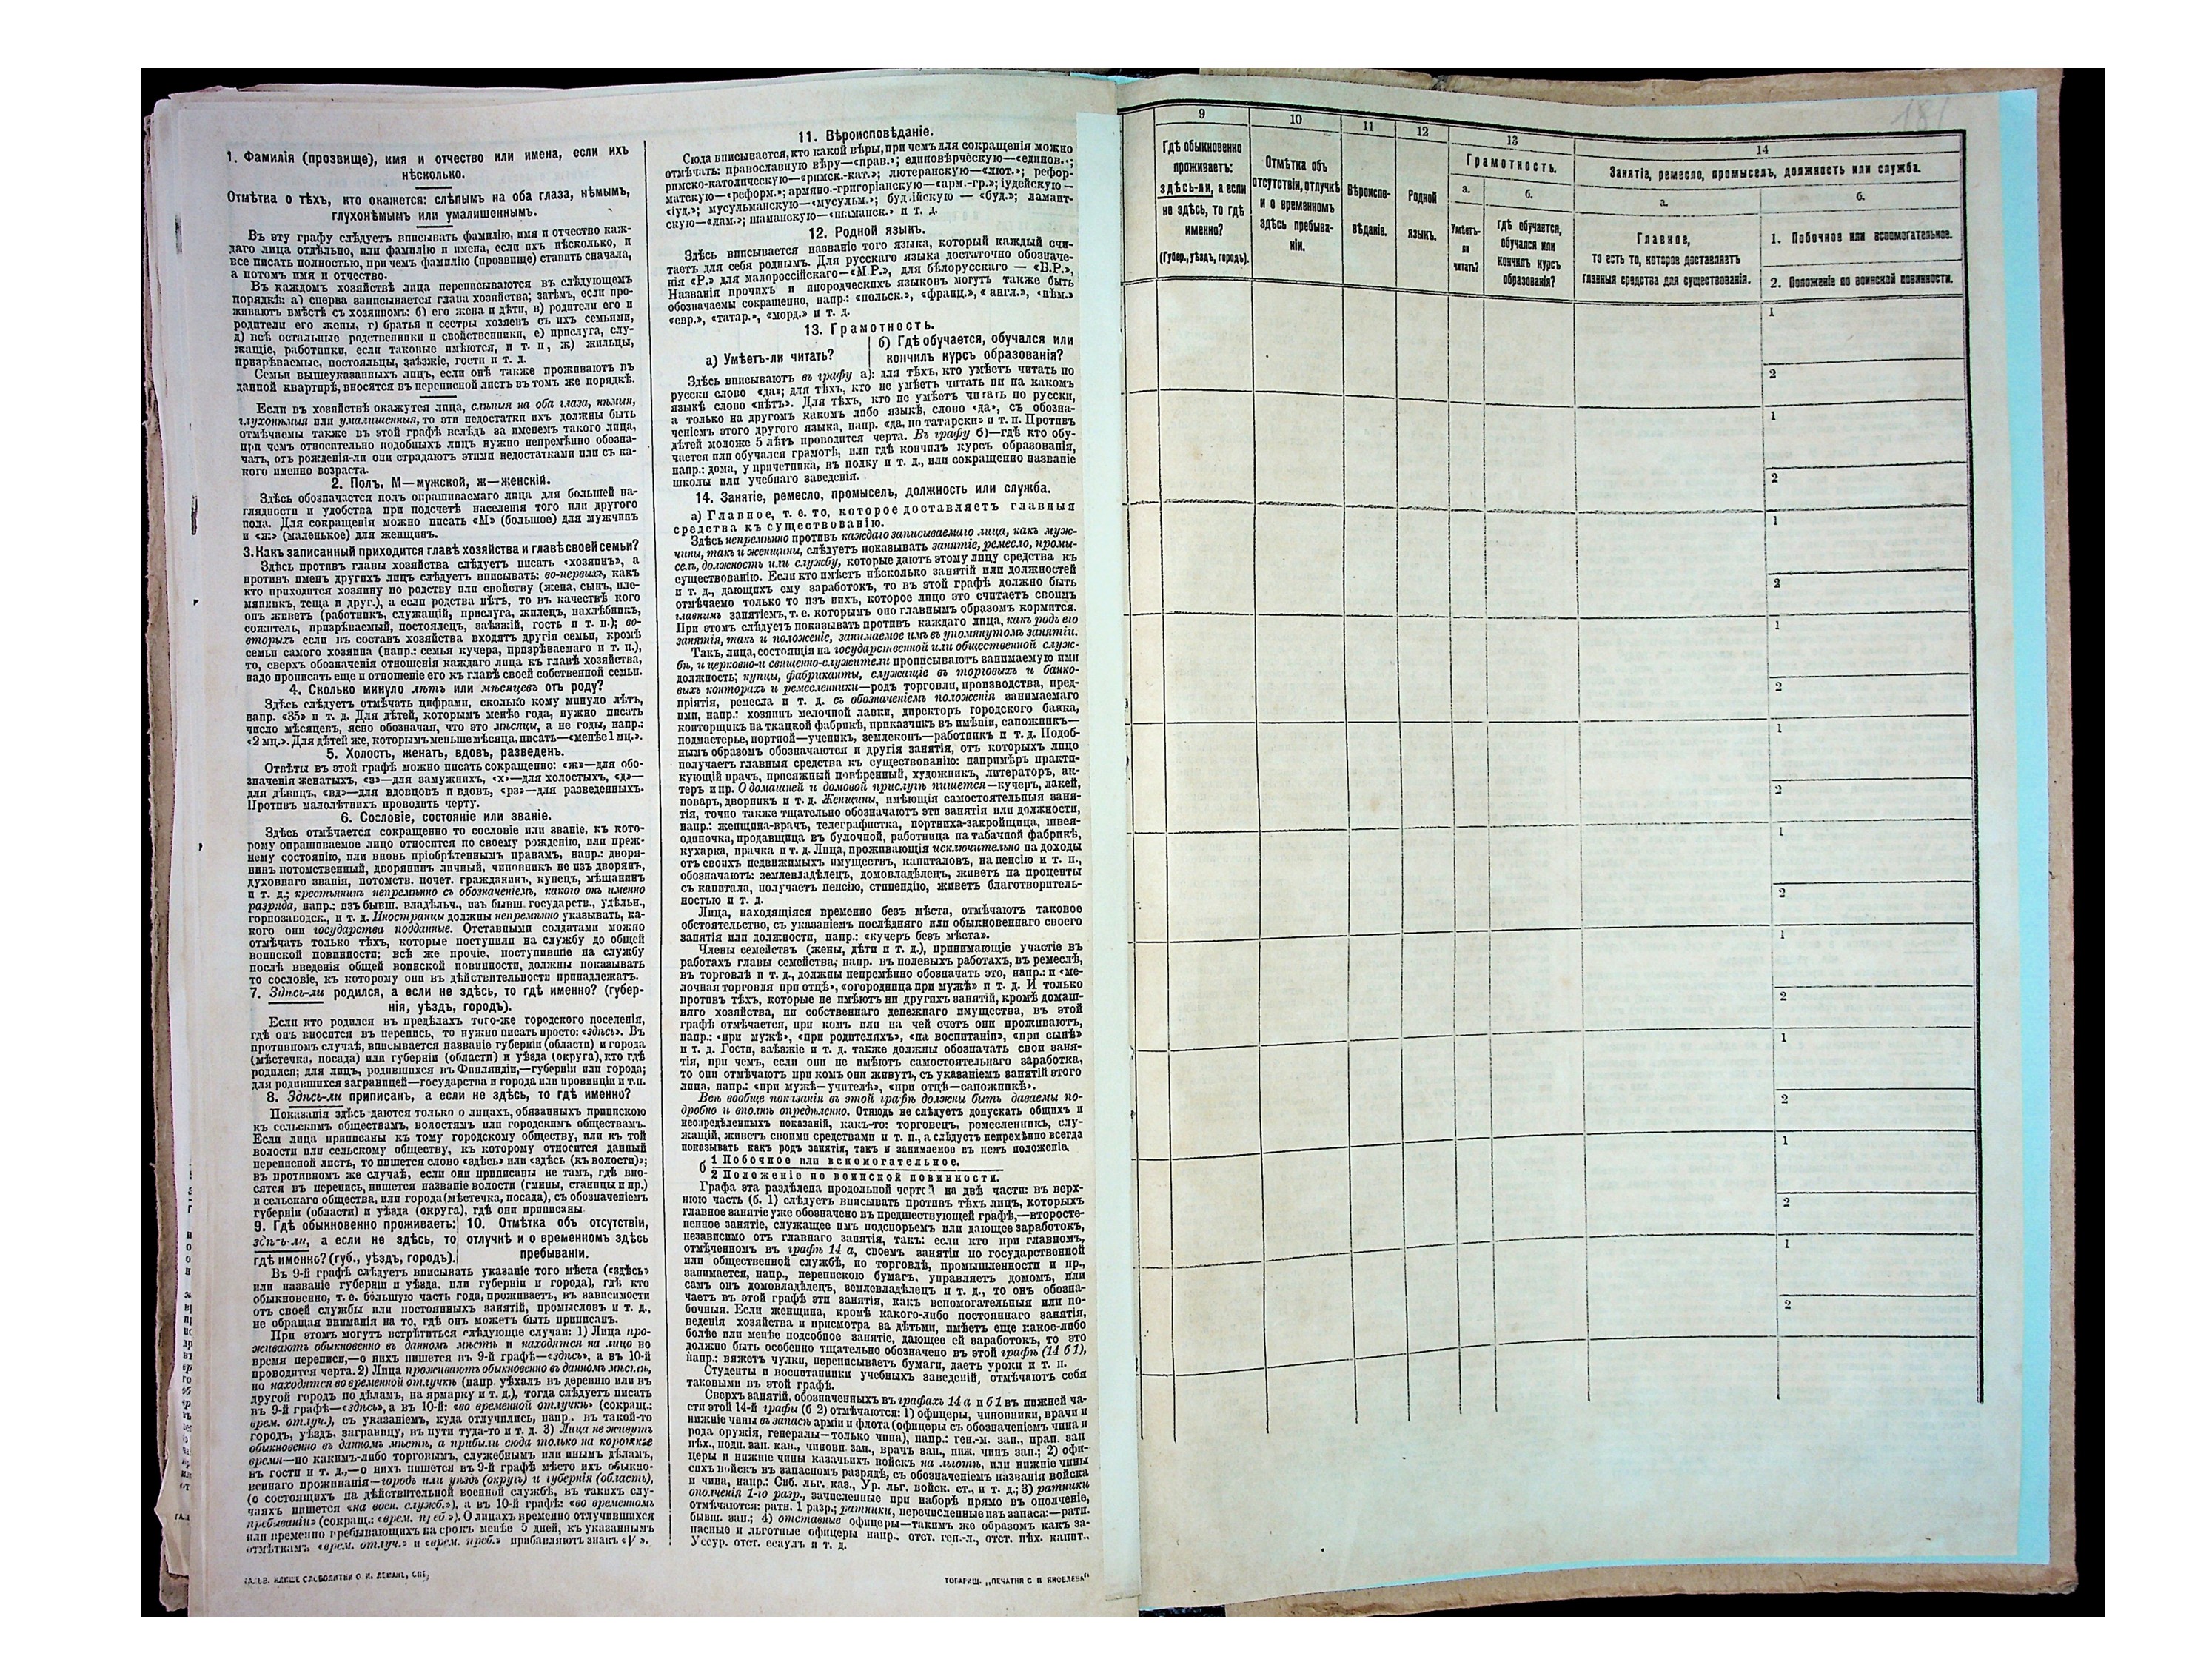 1. Фамилія (прозвище), имя и отчество или имена, если ихъ
нѣсколько.
Отмѣтка о тѣхъ, кто окажется: слѣпымъ на оба глаза, нѣмымъ,
глухонѣмымъ или умалишеннымъ.
Въ эту графу слѣдуетъ вписывать фамилію, имя и отчество каж-
даго лица отдѣльно, или фамилію и имена, если ихъ нѣсколько, и
все писать полностью, при чемъ фамилію (прозвище) ставить сначала,
а потомъ имя и отчество.
Въ каждомъ хозяйствѣ лица переписываются въ слѣдующемъ
порядкѣ: а) сперва записывается глава хозяйства; затѣмъ, если про-
живаютъ вмѣстѣ съ хозяиномъ: б) его жена и дѣти, в) родители его и
родители его жены, г) братья и сестры хозяевъ съ ихъ семьями,
д) всѣ остальные родственники и свойственники, е) прислуга, слу-
жащіе, работники, если таковые имѣются, и т. п., ж) жильцы,
призрѣваемые, постояльцы, заѣзжіе, гости и т. д.
Семьи вышеуказанныхъ лицъ, если онѣ также проживаютъ въ
данной квартирѣ, вносятся въ переписной листъ въ томъ же порядкѣ.
Если въ хозяйствѣ окажутся лица, слѣпыя на оба глаза, нѣмыя,
глухонѣмыя или умалишенныя, то эти недостатки ихъ должны быть
отмѣчаемы также въ этой графѣ вслѣдъ за именемъ такого лица,
при чемъ относительно подобныхъ лицъ нужно непремѣнно обозна-
чать, отъ рожденія-ли они страдаютъ этими недостатками или съ ка-
кого именно возраста.
2. Полъ. М—мужской, ж—женскій.
Здѣсь обозначается полъ опрашиваемаго лица для большей на-
глядности и удобства при подсчетѣ населенія того или другого
пола. Для сокращенія можно писать «М» (большое) для мужчинъ
и «ж» (маленькое) для женщинъ.
3. Какъ записанный приходится главѣ хозяйства и главѣ своей семьи?
Здѣсь противъ главы хозяйства слѣдуетъ писать «хозяинъ», а
противъ именъ другихъ лицъ слѣдуетъ вписывать: во-первыхъ, какъ
кто приходится хозяину по родству или свойству (жена, сынъ, пле-
мянникъ, теща и друг.), а если родства нѣтъ, то въ качествѣ кого
онъ живетъ (работникъ, служащій, прислуга, жилецъ, нахлѣбникъ,
сожитель, призрѣваемый, постоялецъ, заѣзжій, гость и т. п.); во-
вторыхъ если въ составъ хозяйства входятъ другія семьи, кромѣ
семьи самого хозяина (напр.: семья кучера, призрѣваемаго и т. п.),
то, сверхъ обозначенія отношенія каждаго лица къ главѣ хозяйства,
надо прописать еще и отношеніе его къ главѣ своей собственной семьи.
4. Сколько минуло лѣтъ или мѣсяцевъ отъ роду?
Здѣсь слѣдуетъ отмѣчать цифрами, сколько кому минуло лѣтъ,
напр. «35» и т. д. Для дѣтей, которымъ менѣе года, нужно писать
число мѣсяцевъ, ясно обозначая, что это мѣсяцы, а не годы, напр.:
«2 мц.». Для дѣтей же, которымъ меньше мѣсяца, писать—«менѣе 1 мц.».
5. Холостъ, женатъ, вдовъ, разведенъ.
Отвѣты въ этой графѣ можно писать сокращенно: «ж»—для обо-
значенія женатыхъ, «з»—для замужнихъ, «х»—для холостыхъ, «д»—
для дѣвицъ, «вд»—для вдовцовъ и вдовъ, «рз»—для разведенныхъ.
Противъ малолѣтнихъ проводить черту.
6. Сословіе, состояніе или званіе.
Здѣсь отмѣчается сокращенно то сословіе или званіе, къ кото-
рому опрашиваемое лицо относится по своему рожденію, или преж-
нему состоянію, или вновь пріобрѣтеннымъ правамъ, напр.: дворя-
нинъ потомственный, дворянинъ личный, чиновникъ не изъ дворянъ,
духовнаго званія, потомств. почет. гражданинъ, купецъ, мѣщанинъ
и т. д.; крестьянинъ непремѣнно съ обозначеніемъ, какого онъ именно
разряда, напр.: изъ бывш. владѣльч., изъ бывш. государств., удѣльн.,
горнозаводск., и т. д. Иностранцы должны непремѣнно указывать, ка-
кого они государства подданные. Отставными солдатами можно
отмѣчать только тѣхъ, которые поступили на службу до общей
воинской повинности; всѣ же прочіе, поступившіе на службу
послѣ введенія общей воинской повинности, должны показывать
то сословіе, къ которому они въ дѣйствительности принадлежатъ.
7. Здѣсь-ли родился, а если не здѣсь, то гдѣ именно? (губер-
нія, уѣздъ, городъ).
Если кто родился въ предѣлахъ того-же городского поселенія,
гдѣ онъ вносится въ перепись, то нужно писать просто: «здѣсь». Въ
противномъ случаѣ, вписывается названіе губерніи (области) и города
(мѣстечка, посада) или губерніи (области) и уѣзда (округа), кто гдѣ
родился; для лицъ, родившихся въ Финляндіи,—губерніи или города;
для родившихся заграницей—государства и города или провинціи и т.п.
8. Здѣсь-ли приписанъ, а если не здѣсь, то гдѣ именно?
Показанія здѣсь даются только о лицахъ, обязанныхъ припискою
къ сельскимъ обществамъ, волостямъ или городскимъ обществамъ.
Если лица приписаны къ тому городскому обществу, или къ той
волости или сельскому обществу, къ которому относится данный
переписной листъ, то пишется слово «здѣсь» или «здѣсь (къ волости)»;
въ противномъ же случаѣ, если они приписаны не тамъ, гдѣ вно-
сятся въ перепись, пишется названіе волости (гмины, станицы и пр.)
и сельскаго общества, или города (мѣстечка, посада), съ обозначеніемъ
губерніи (области) и уѣзда (округа), гдѣ они приписаны
9. Гдѣ обыкновенно проживаетъ:
здѣсь-ли, а если не здѣсь, то
гдѣ именно? (губ., уѣздъ, городъ).
10. Отмѣтка объ отсутствіи,
отлучкѣ и о временномъ здѣсь
пребываніи.
Въ 9-й графѣ слѣдуетъ вписывать указаніе того мѣста («здѣсь»
или названіе губерніи и уѣзда, или губерніи и города), гдѣ кто
обыкновенно, т. е. бо́льшую часть года, проживаетъ, въ зависимости
отъ своей службы или постоянныхъ занятій, промысловъ и т. д.,
не обращая вниманія на то, гдѣ онъ можетъ быть приписанъ.
При этомъ могутъ встрѣтиться слѣдующіе случаи: 1) Лица про-
живаютъ обыкновенно въ данномъ мѣстѣ и находятся на лицо во
время переписи,—о нихъ пишется въ 9-й графѣ—«здѣсь», а въ 10-й
проводится черта. 2) Лица проживаютъ обыкновенно въ данномъ мѣстѣ,
но находятся во временной отлучкѣ (напр. уѣхалъ въ деревню или въ
другой городъ по дѣламъ, на ярмарку и т. д.), тогда слѣдуетъ писать
въ 9-й графѣ—«здѣсь», а въ 10-й: «во временной отлучкѣ» (сокращ.:
врем. отлуч.), съ указаніемъ, куда отлучились, напр.. въ такой-то
городъ, уѣздъ, заграницу, въ пути туда-то и т. д. 3) Лица не живутъ
обыкновенно въ данномъ мѣстѣ, а прибыли сюда только на короткое
время—по какимъ-либо торговымъ, служебнымъ или инымъ дѣламъ,
въ гости и т. д.,—о нихъ пишется въ 9-й графѣ мѣсто ихъ обыкно-
веннаго проживанія—городъ или уѣздъ (округъ) и губернія (область),
(о состоящихъ на дѣйствительной военной службѣ, въ такихъ слу-
чаяхъ пишется «на воен. служб.»), а въ 10-й графѣ: «во временномъ
пребываніи» (сокращ.: «врем. преб.»). О лицахъ временно отлучившихся
или временно пребывающихъ на срокъ менѣе 5 дней, къ указаннымъ
отмѣткамъ «врем. отлуч.» и «врем. преб.» прибавляютъ знакъ «V».
11. Вѣроисповѣданіе.
Сюда вписывается, кто какой вѣры, при чемъ для сокращенія можно
отмѣчать: православную вѣру—«прав.»; единовѣрческую—«единов.»;
римско-католическую—«римск.-кат.»; лютеранскую—«лют.»; рефор-
матскую—«реформ.»; армяно-григоріанскую—«арм.-гр.»; іудейскую—
«іуд.»; мусульманскую—«мусульм.»; буддійскую — «буд.»; ламаит-
скую—«лам.»; шаманскую—«шаманск.» и т. д.
12. Родной языкъ.
Здѣсь вписывается названіе того языка, который каждый счи-
таетъ для себя роднымъ. Для русскаго языка достаточно обозначе-
нія «Р.» для малороссійскаго—«М.Р.», для бѣлорусскаго — «Б.Р.»,
Названія прочихъ и инородческихъ языковъ могутъ также быть
обозначаемы сокращенно, напр.: «польск.», «франц.», «англ.», «нѣм.»
«евр.», «татар.», «морд.» и т. д.
13. Грамотность.
а) Умѣетъ-ли читать?
б) Гдѣ обучается, обучался или
кончилъ курсъ образованія?
Здѣсь вписываютъ въ графу а): для тѣхъ, кто умѣетъ читать по
русски слово «да»; для тѣхъ, кто не умѣетъ читать ни на какомъ
языкѣ слово «нѣтъ». Для тѣхъ, кто не умѣетъ читать по русски,
а только на другомъ какомъ либо языкѣ, слово «да», съ обозна-
ченіемъ этого другого языка, напр. «да, по татарски» и т. п. Противъ
дѣтей моложе 5 лѣтъ проводится черта. Въ графу б)—гдѣ кто обу-
чается или обучался грамотѣ, или гдѣ кончилъ курсъ образованія,
напр.: дома, у причетника, въ полку и т. д., или сокращенно названіе
школы или учебнаго заведенія.
14. Занятіе, ремесло, промыселъ, должность или служба.
а) Главное, т. е. то, которое доставляетъ главныя
средства къ существованію.
Здѣсь непремѣнно противъ каждаго записываемаго лица, какъ муж-
чины, такъ и женщины, слѣдуетъ показывать занятіе, ремесло, промы-
селъ, должность или службу, которые даютъ этому лицу средства къ
существованію. Если кто имѣетъ нѣсколько занятій или должностей
и т. д., дающихъ ему заработокъ, то въ этой графѣ должно быть
отмѣчаемо только то изъ нихъ, которое лицо это считаетъ своимъ
главнымъ занятіемъ, т. е. которымъ оно главнымъ образомъ кормится.
При этомъ слѣдуетъ показывать противъ каждаго лица, какъ родъ его
занятія, такъ и положеніе, занимаемое имъ въ упомянутомъ занятіи.
Такъ, лица, состоящія на государственной или общественной служ-
бѣ, и церковно-и священно-служители прописываютъ занимаемую ими
должность; купцы, фабриканты, служащіе въ торговыхъ и банко-
выхъ конторахъ и ремесленники—родъ торговли, производства, пред-
пріятія, ремесла и т. д. съ обозначеніемъ положенія занимаемаго
ими, напр.: хозяинъ мелочной лавки, директоръ городского банка,
конторщикъ на ткацкой фабрикѣ, приказчикъ въ имѣніи, сапожникъ—
подмастерье, портной—ученикъ, землекопъ—работникъ и т. д. Подоб-
нымъ образомъ обозначаются и другія занятія, отъ которыхъ лицо
получаетъ главныя средства къ существованію: напримѣръ практи-
кующій врачъ, присяжный повѣренный, художникъ, литераторъ, ак-
теръ и пр. О домашней и домовой прислугѣ пишется—кучеръ, лакей,
поваръ, дворникъ и т. д. Женщины, имѣющія самостоятельныя заня-
тія, точно также тщательно обозначаютъ эти занятія или должности,
напр.: женщина-врачъ, телеграфистка, портниха-закройщица, швея-
одиночка, продавщица въ булочной, работница на табачной фабрикѣ,
кухарка, прачка и т. д. Лица, проживающія исключительно на доходы
отъ своихъ недвижимыхъ имуществъ, капиталовъ, на пенсію и т. п.,
обозначаютъ: землевладѣлецъ, домовладѣлецъ, живетъ на проценты
съ капитала, получаетъ пенсію, стипендію, живетъ благотворитель-
ностью и т. д.
Лица, находящіяся временно безъ мѣста, отмѣчаютъ таковое
обстоятельство, съ указаніемъ послѣдняго или обыкновеннаго своего
занятія или должности, напр.: «кучеръ безъ мѣста».
Члены семействъ (жены, дѣти и т. д.), принимающіе участіе въ
работахъ главы семейства, напр. въ полевыхъ работахъ, въ ремеслѣ,
въ торговлѣ и т. д., должны непремѣнно обозначать это, напр.: и «ме-
лочная торговля при отцѣ», «огородница при мужѣ» и т. д. И только
противъ тѣхъ, которые не имѣютъ ни другихъ занятій, кромѣ домаш-
няго хозяйства, ни собственнаго денежнаго имущества, въ этой
графѣ отмѣчается, при комъ или на чей счетъ они проживаютъ,
напр.: «при мужѣ», «при родителяхъ», «на воспитаніи», «при сынѣ»
и т. д. Гости, заѣзжіе и т. д. также должны обозначать свои заня-
тія, при чемъ, если они не имѣютъ самостоятельнаго заработка,
то они отмѣчаютъ при комъ они живутъ, съ указаніемъ занятій этого
лица, напр.: «при мужѣ—учителѣ», «при отцѣ—сапожникѣ».
Всѣ вообще показанія въ этой графѣ должны быть даваемы по-
дробно и вполнѣ опредѣленно. Отнюдь не слѣдуетъ допускать общихъ и
неопредѣленныхъ показаній, какъ-то: торговецъ, ремесленникъ, слу-
жащій, живетъ своими средствами и т. п., а слѣдуетъ непремѣнно всегда
показывать какъ родъ занятія, такъ и занимаемое въ немъ положеніе.
б 1 Побочное или вспомогательное.
2 Положеніе по воинской повинности.
Графа эта раздѣлена продольной чертой на двѣ части: въ верх-
нюю часть (б. 1) слѣдуетъ вписывать противъ тѣхъ лицъ, которыхъ
главное занятіе уже обозначено въ предшествующей графѣ,—второсте-
пенное занятіе, служащее имъ подспорьемъ или дающее заработокъ,
независимо отъ главнаго занятія, такъ: если кто при главномъ,
отмѣченномъ въ графѣ 14 а, своемъ занятіи по государственной
или общественной службѣ, по торговлѣ, промышленности и пр.,
занимается, напр., перепискою бумагъ, управляетъ домомъ, или
самъ онъ домовладѣлецъ, землевладѣлецъ и т. д., то онъ обозна-
чаетъ въ этой графѣ эти занятія, какъ вспомогательныя или по-
бочныя. Если женщина, кромѣ какого-либо постояннаго занятія,
веденія хозяйства и присмотра за дѣтьми, имѣетъ еще какое-либо
болѣе или менѣе подсобное занятіе, дающее ей заработокъ, то это
должно быть особенно тщательно обозначено въ этой графѣ (14 б 1),
напр.: вяжетъ чулки, переписываетъ бумаги, даетъ уроки и т. п.
Студенты и воспитанники учебныхъ заведеній, отмѣчаютъ себя
таковыми въ этой графѣ.
Сверхъ занятій, обозначенныхъ въ графахъ 14 а и б 1 въ нижней ча-
сти этой 14-й графы (б 2) отмѣчаются: 1) офицеры, чиновники, врачи и
нижніе чины въ запасѣ арміи и флота (офицеры съ обозначеніемъ чина и
рода оружія, генералы—только чина), напр.: ген.-м. зап., прап. зап
пѣх., подп. зап. кав., чиновн. зап., врачъ зап., ниж. чинъ зап.; 2) офи-
церы и нижніе чины казачьихъ войскъ на льготѣ, или нижніе чины
сихъ войскъ въ запасномъ разрядѣ, съ обозначеніемъ названія войска
и чина, напр.: Сиб. льг. каз., Ур. льг. войск. ст., и т. д.; 3) ратники
ополченія 1-го разр., зачисленные при наборѣ прямо въ ополченіе,
отмѣчаются: ратн. 1 разр.; ратники, перечисленные изъ запаса:—ратн.
бывш. зап.; 4) отставные офицеры—такимъ же образомъ какъ за-
пасные и льготные офицеры напр.. отст. ген.-л., отст. пѣх. капит.,
Уссур. отст. есаулъ и т. д.
ТОВАРИЩ. „ПЕЧАТНЯ С П ЯКОВЛЕВА"
181
9
Гдѣ обыкновенно
проживаетъ:
здѣсь-ли, а если
не здѣсь, то гдѣ
именно?
(Губер., уѣздъ, городъ).
10
Отмѣтка объ
отсутствіи, отлучкѣ
и о временномъ
здѣсь пребыва-
ніи.
11
Вѣроиспо-
вѣданіе.
12
Родной
языкъ.
13
Грамотность.
а.
Умѣетъ-
ли
читать?
б.
Гдѣ обучается,
обучался или
кончилъ курсъ
образованія?
14
Занятіе, ремесло, промыселъ, должность или служба.
а.
Главное,
то есть то, которое доставляетъ
главныя средства для существованія.
б.
1. Побочное или вспомогательное.
2. Положеніе по воинской повинности.
1
2
1
2
1
2
1
2
1
2
1
2
1
2
1
2
1
2
1
2